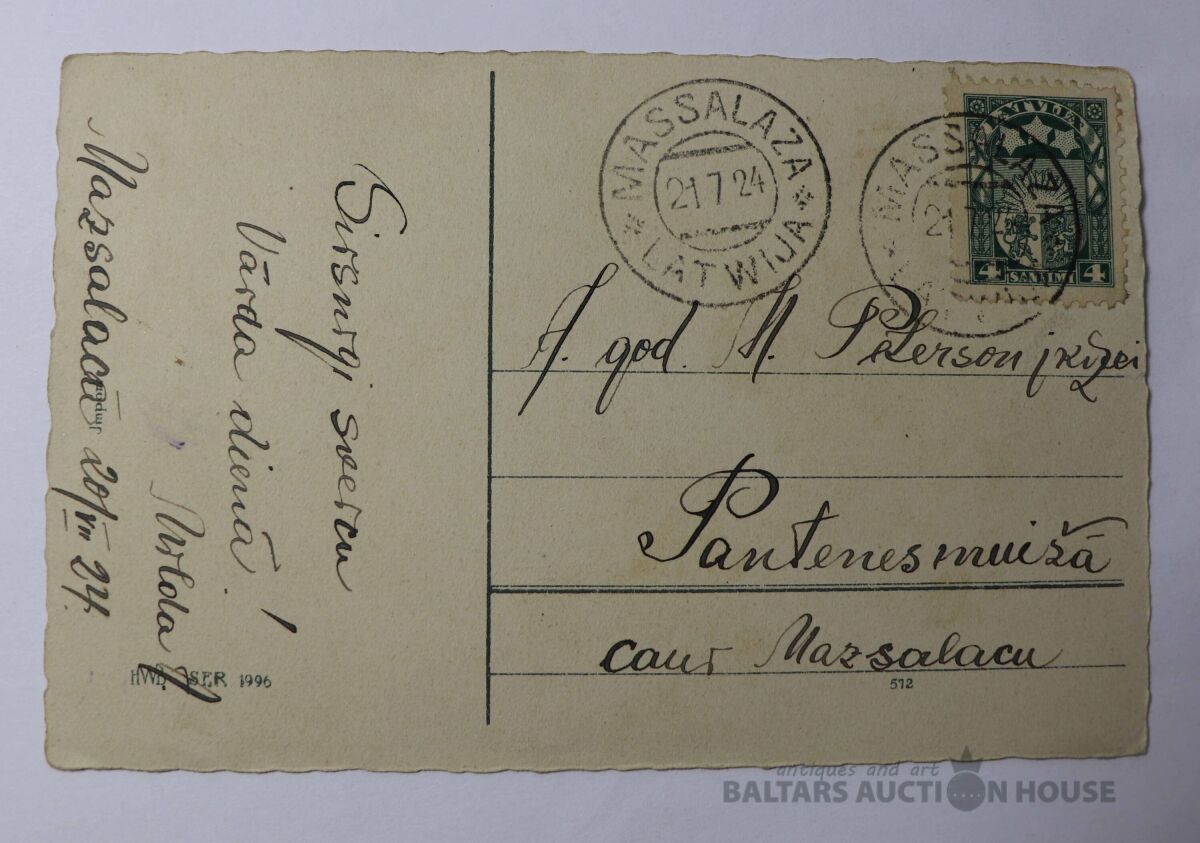 Sirsnīgi sveicu
Vārda dienā!
Milda
Mazsalacā 20/VII 24.
HWB SER 1996
MASSALAZA
21 7 24
LATWIJA
MASSALAZA
21
LATVIJA
4 SANTIMI 4
J. god. M. Peterson jkdzei
Pantenesmuižā
caur Mazsalacu
512
antiques and art
BALTARS AUCTION HOUSE